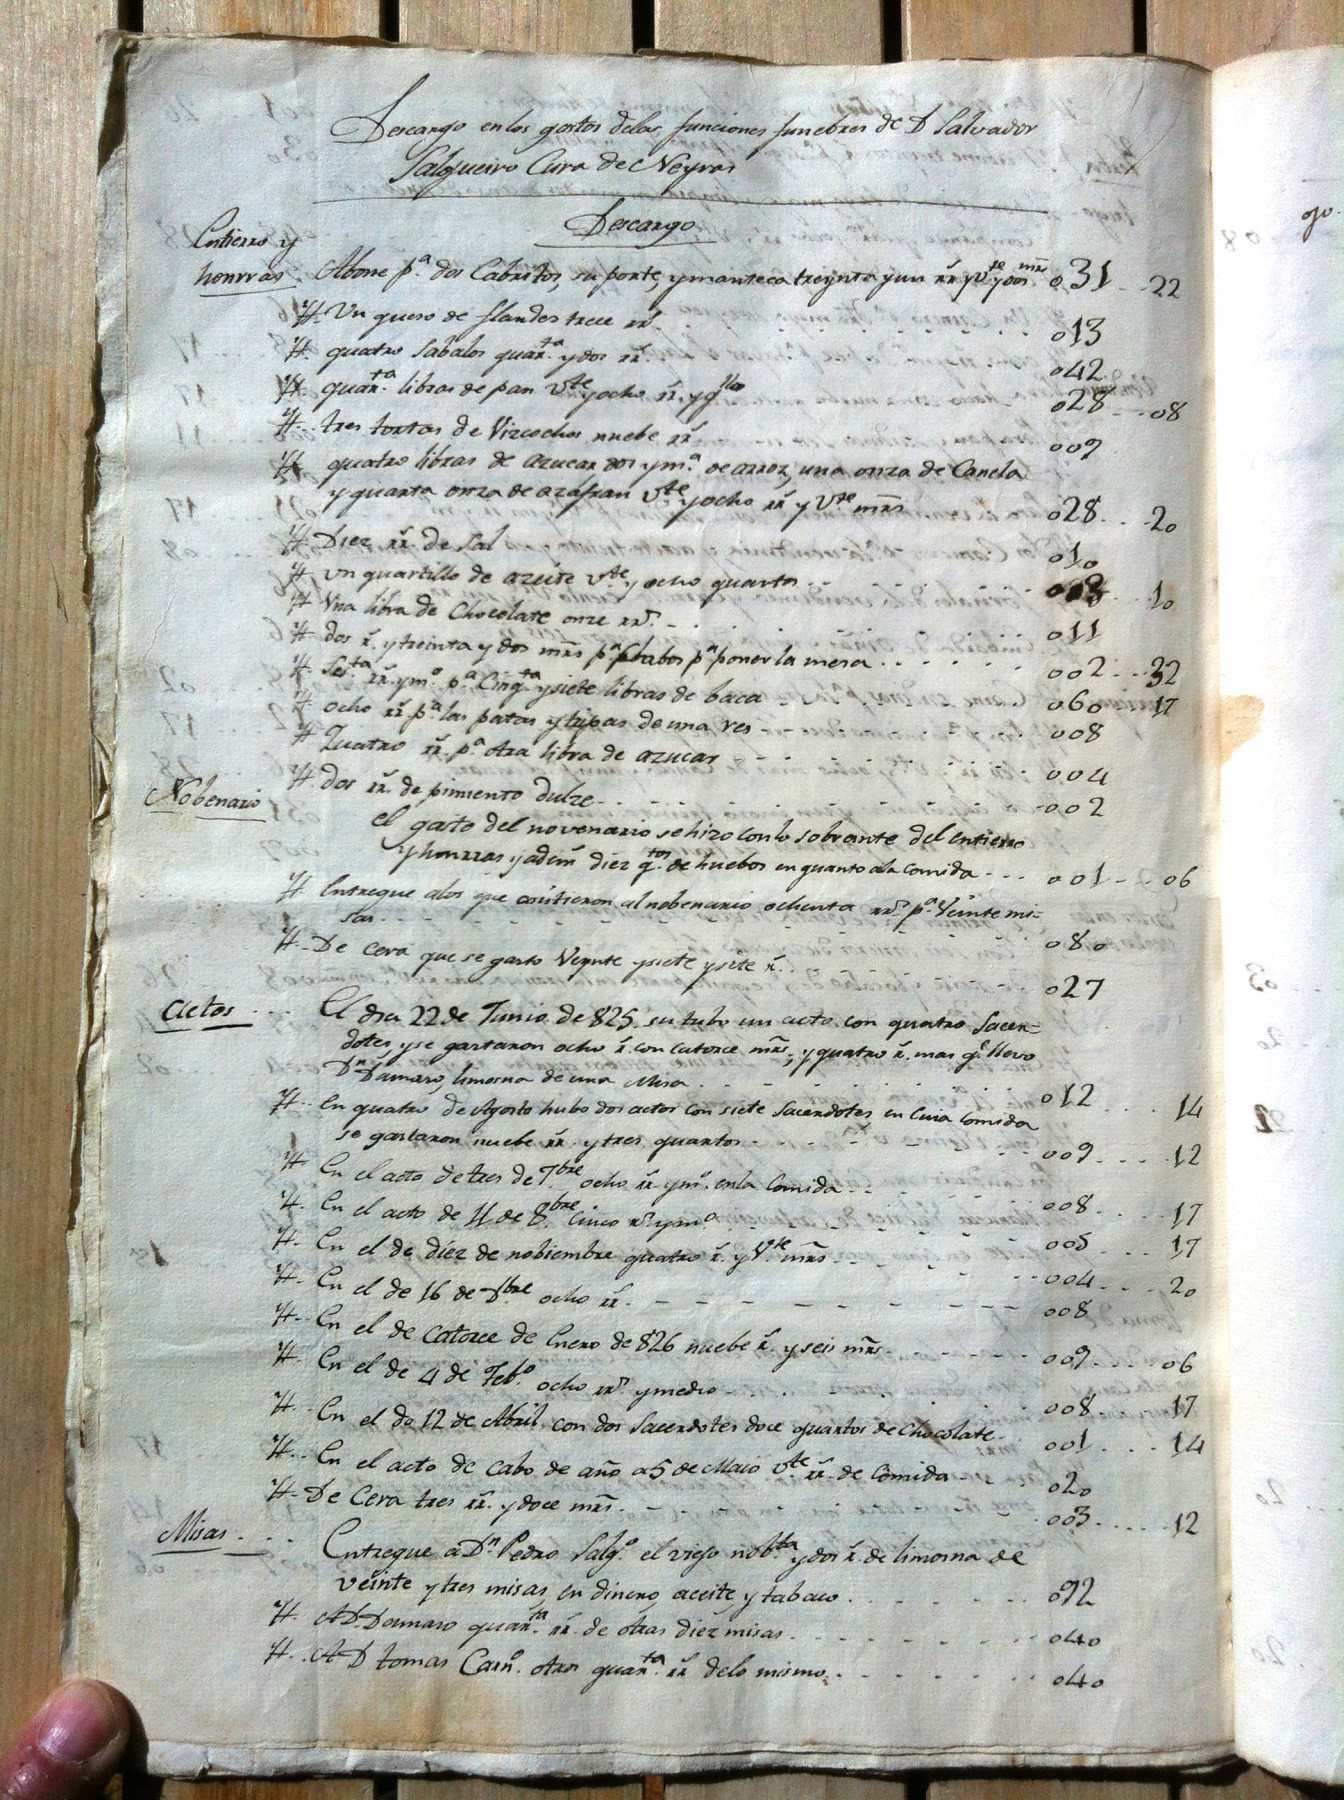 Descargo en los gastos delas funciones funebres de D Salvador
Salgueiro Cura de Neyras
Descargo
Entierro y
honrras. Abone pª. dos Cabritos, su porte, y manteca treynta y un rrˢ y vᵗᵉ y dos mrs 031 - - 22
Yt. Un queso de flandes trece rrˢ 013
Yt. quatro Sabalos quarᵗᵃ. y dos rrˢ 042
Yt. quarᵗᵃ. libras de pan vᵗᵉ y ocho rrˢ. y qᵗˡˡᵒ 028 - - 08
Yt. tres tortas de Vizcochos nuebe rrˢ 009
Yt. quatro libras de azucar, dos y mª. de arroz, una onza de Canela
y quarta onza de azafran vᵗᵉ y ocho rrˢ y Vᵗᵉ mrs 028 - - 20
Yt. Diez rrˢ de Sal 010
Yt. un quartillo de azeite vᵗᵉ y ocho quartos - - 10
Yt. Una libra de Chocolate onze rrˢ. 011
Yt. dos rˢ. y treinta y dos mrs pª Clabos pª poner la mesa 002 - - 32
Yt. Sesᵗᵃ rrˢ. y mº pª. Cinqᵗᵃ y siete libras de baca 060 17
Yt. ocho rrˢ. pª las patas y tripas de una res 008
Yt. Quatro rrˢ. pª otra libra de azucar 004
Yt. dos rrˢ. de pimiento dulze 002
Nobenario
el gasto del novenario se hizo con lo sobrante del entierro
y honrras y ademˢ diez qᵗᵒˢ de huebos en quanto ala comida - - - 001 - - 06
Yt Entregue alos que asistieron al nobenario ochenta rrˢ. pª. Veinte mi=
sas 080
Yt. De Cera que se gasto Veynte y siete y siete rˢ. 027
Actos El dia 22 de Junio de 825 su tubo un acto con quatro Sacer=
dotes y se gastaron ocho rˢ. con catorce mrs, y quatro rˢ. mas qᵉ llevo
Dⁿ Damaso, limosna de una Misa 012 14
Yt. en quatro de Agosto hubo dos actos con siete Sacerdotes, en cuia comida
se gastaron nuebe rrˢ. y tres quartos 009 12
Yt. En el acto de tres de 7ᵇʳᵉ ocho rrˢ y mº. en la Comida 008 17
Yt. En el acto de 4 de 8ᵇʳᵉ Cinco rˢ. y mº 005 17
Yt. En el de diez de nobiembre quatro rˢ. y Vᵗᵉ mrs 004 20
Yt. En el de 16 de Dᵇʳᵉ ocho rrˢ. 008
Yt. En el de catorce de Enero de 826 nuebe rˢ. y seis mrs. 009 06
Yt. En el de 4 de Febº. ocho rrˢ. y medio 008 17
Yt. En el de 12 de Abril con dos Sacerdotes doce quartos de Chocolate 001 14
Yt. En el acto de cabo de año a 5 de Maio vᵗᵉ rrˢ. de Comida 020
Yt. De Cera tres rrˢ. y doce mrs. 003 12
Misas Entregue a Dⁿ. Pedro Salgº. el viejo nobᵗᵃ y dos rˢ. de limosna de
veinte y tres misas, en dinero, aceite, y tabaco 092
Yt. A D. Damaso quarᵗᵃ. rrˢ. de otras diez misas 040
Yt. A D tomas Carnº. otros quarᵗᵃ. rrˢ delo mismo 040